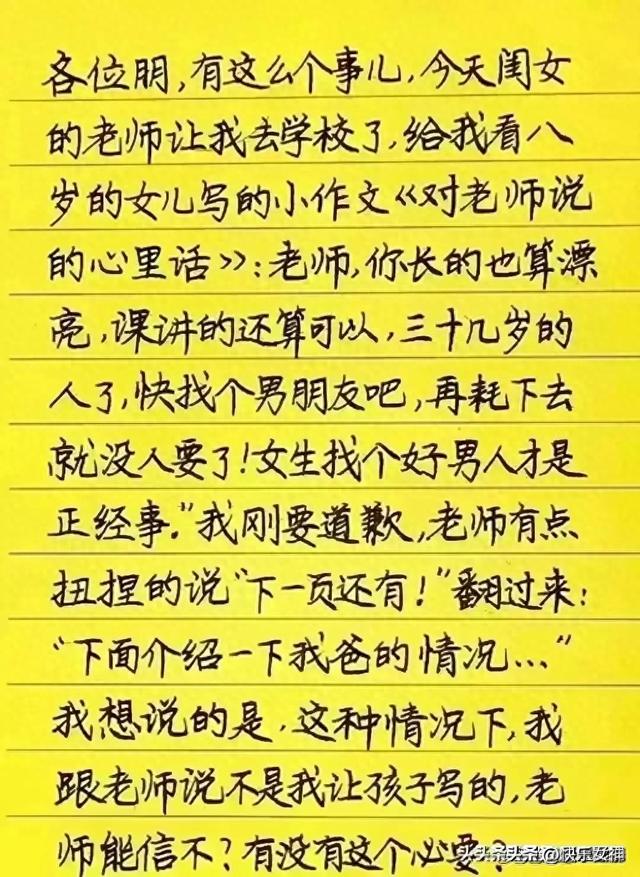 各位朋,有这么个事儿,今天闺女
的老师让我去学校了,给我看八
岁的女儿写的小作文《对老师说
的心里话》:老师,你长的也算漂
亮,课讲的还算可以,三十几岁的
人了,快找个男朋友吧,再耗下去
就没人要了!女生找个好男人才是
正经事."我刚要道歉,老师有点
扭捏的说"下一页还有!"翻过来:
"下面介绍一下我爸的情况..."
我想说的是,这种情况下,我
跟老师说不是我让孩子写的,老
师能信不?有没有这个必要?
头条@快乐女神